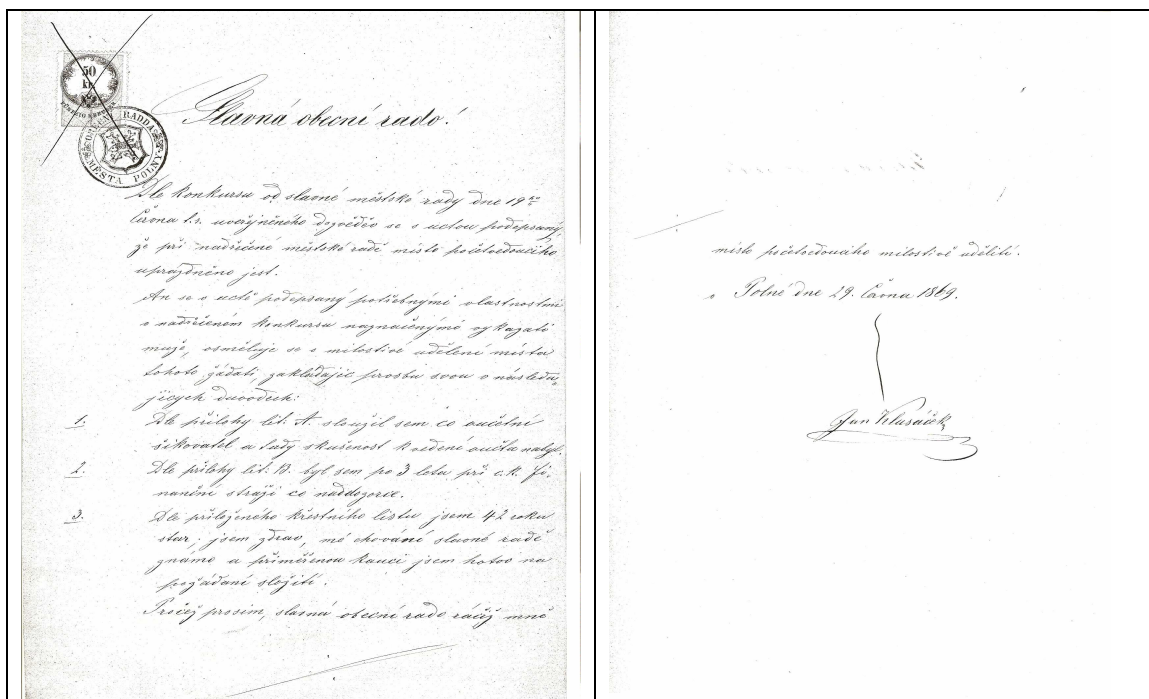 50
kr.
OBECNÍ RADDA
MĚSTA POLNY
Slavná obecní rado!
Dle konkursu od slavné městské rady dne 19ho
Června t.r. uveřejněného dozvěděv se s uctou podepsaný,
že při nadřičené městské radě místo početvedoucího
uprázdněno jest.
An se v uctě podepsaný potřebnými vlastnostmi
v nadřičeném konkursu naznačenými vykazati
může, osměluje se o milostivé udělení místa
tohoto žádati, zakládajíc prosbu svou v následu-
jicych duvodech:
1. Dle přílohy lit. A. sloužil sem co oučetní
šikovatel a tudy skušenost k vedení oučtu nabyl.
2. Dle přílohy lit. B. byl sem po 3 leta při c.k. fi-
nanční stráži co naddozorce.
3. Dle přiloženého křestního listu jsem 42 roku
stár; jsem zdráv, mé chování slavné radě
známo a přiměřenou kauci jsem hotov na
požádaní složiti.
Pročež prosím, slavná obecní rado ráčiž mně
místo početvedoucího milostivě uděliti.
v Polné dne 29. Června 1869.
Jan Klusáček